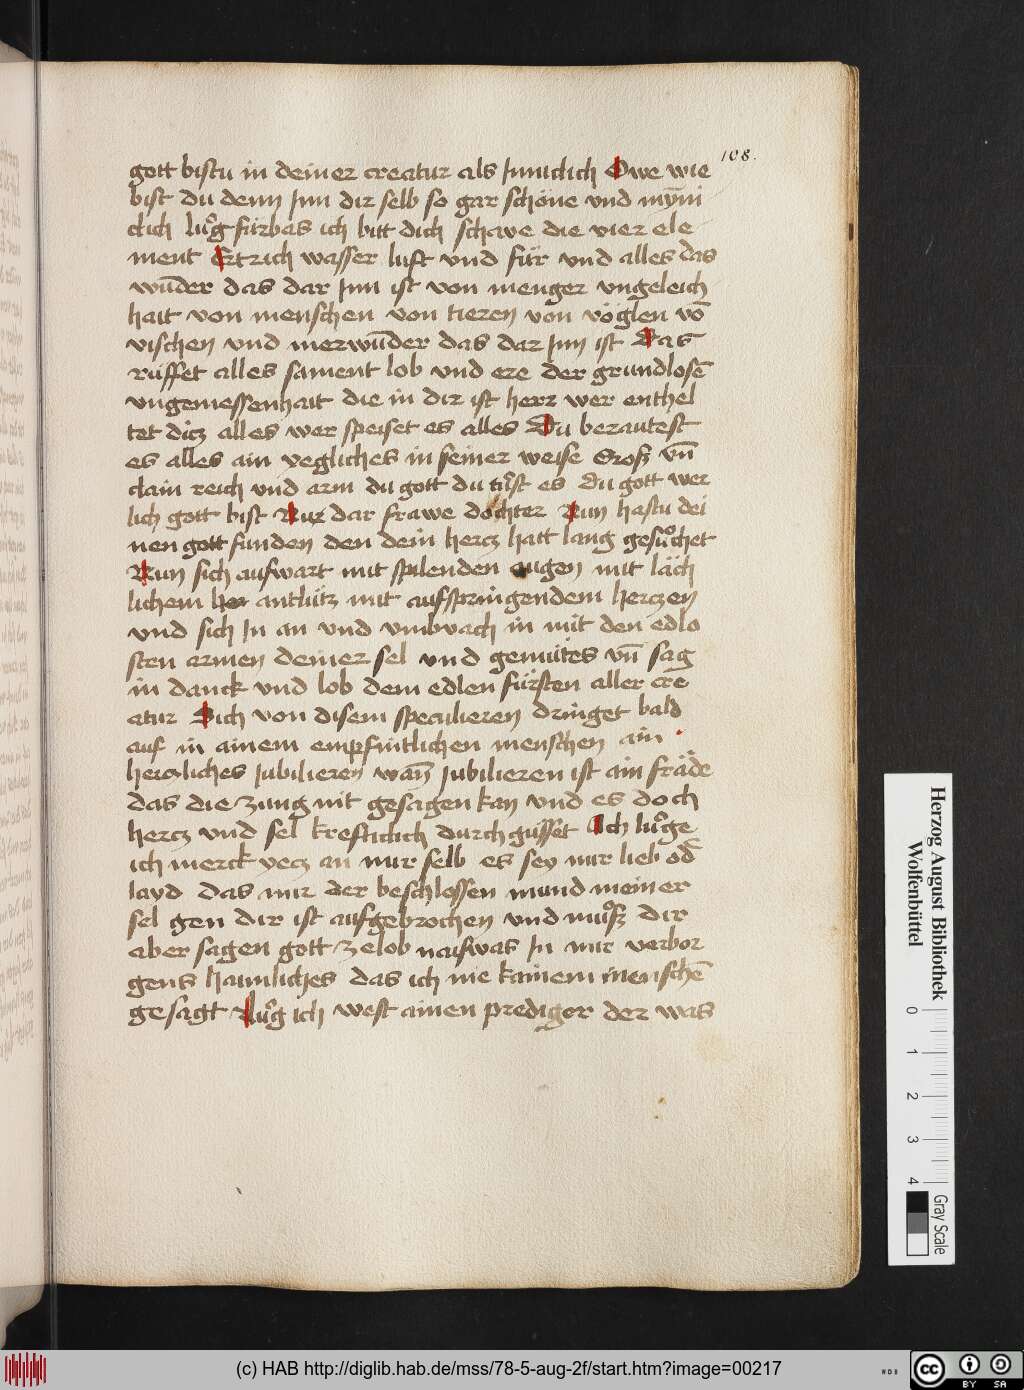 108.
gott bistu in deiner creatur als Jnniclich Owe wie
bist du denn Jnn dir selb so gar schöne und mỹni
clich luͦg fürbas ich bitt dich schawe die vier ele
ment Ertrich wasser luft vnd für vnd alles das
wūder das dar Jnn ist von menger vngeleich
hait von menschen von tieren von vöglen vō
vischen vnd merwūder das dar Jnn ist Das
rüffet alles sament lob vnd ere der grundlosē
vngemessenhait die in dir ist herr wer enthel
tet dicz alles wer speiset es alles Du berautest
es alles ain yegliches in seiner weise Gros vn̄
clain reich vnd arm du gott du tuͦst es du gott wer
lich gott bist Nur dar frawe dochter Nun hastu dei
nen gott funden den dein hercz hatt lang gesuͦchet
Nun sich aufwart mit spilenden augen mit läch
lichem her antlütz mit aufspringendem herczen
vnd sich In an vnd vmbvach in mit den edlo
sten armen deiner sel vnd gemütes vn̄ sag
in danck vnd lob dem edlen fürsten aller cre
atur Sich von disem speculieren dringet bald
auf in ainem empfintlichen menschen ain
hercliches Jubilieren wañ Jubilieren ist ain fräde
das die zung nit gesagen kan vnd es doch
hercz vnd sel krefticlich durch güsset Ach luͦge
ich merck yecz an mir selb es sey mir lieb od̄
layd das mir der beschlossen mund meiner
sel gen dir ist aufgebrochen vnd muͦsz dir
aber sagen gott ze lob naiswas In mir verbor
gens haimliches das ich nie kainem menschē
gesagt Luͦg ich west ainen prediger der was
Herzog August Bibliothek
Wolfenbüttel
0 1 2 3 4
Gray Scale
(c) HAB http://diglib.hab.de/mss/78-5-aug-2f/start.htm?image=00217
WDB
cc BY SA